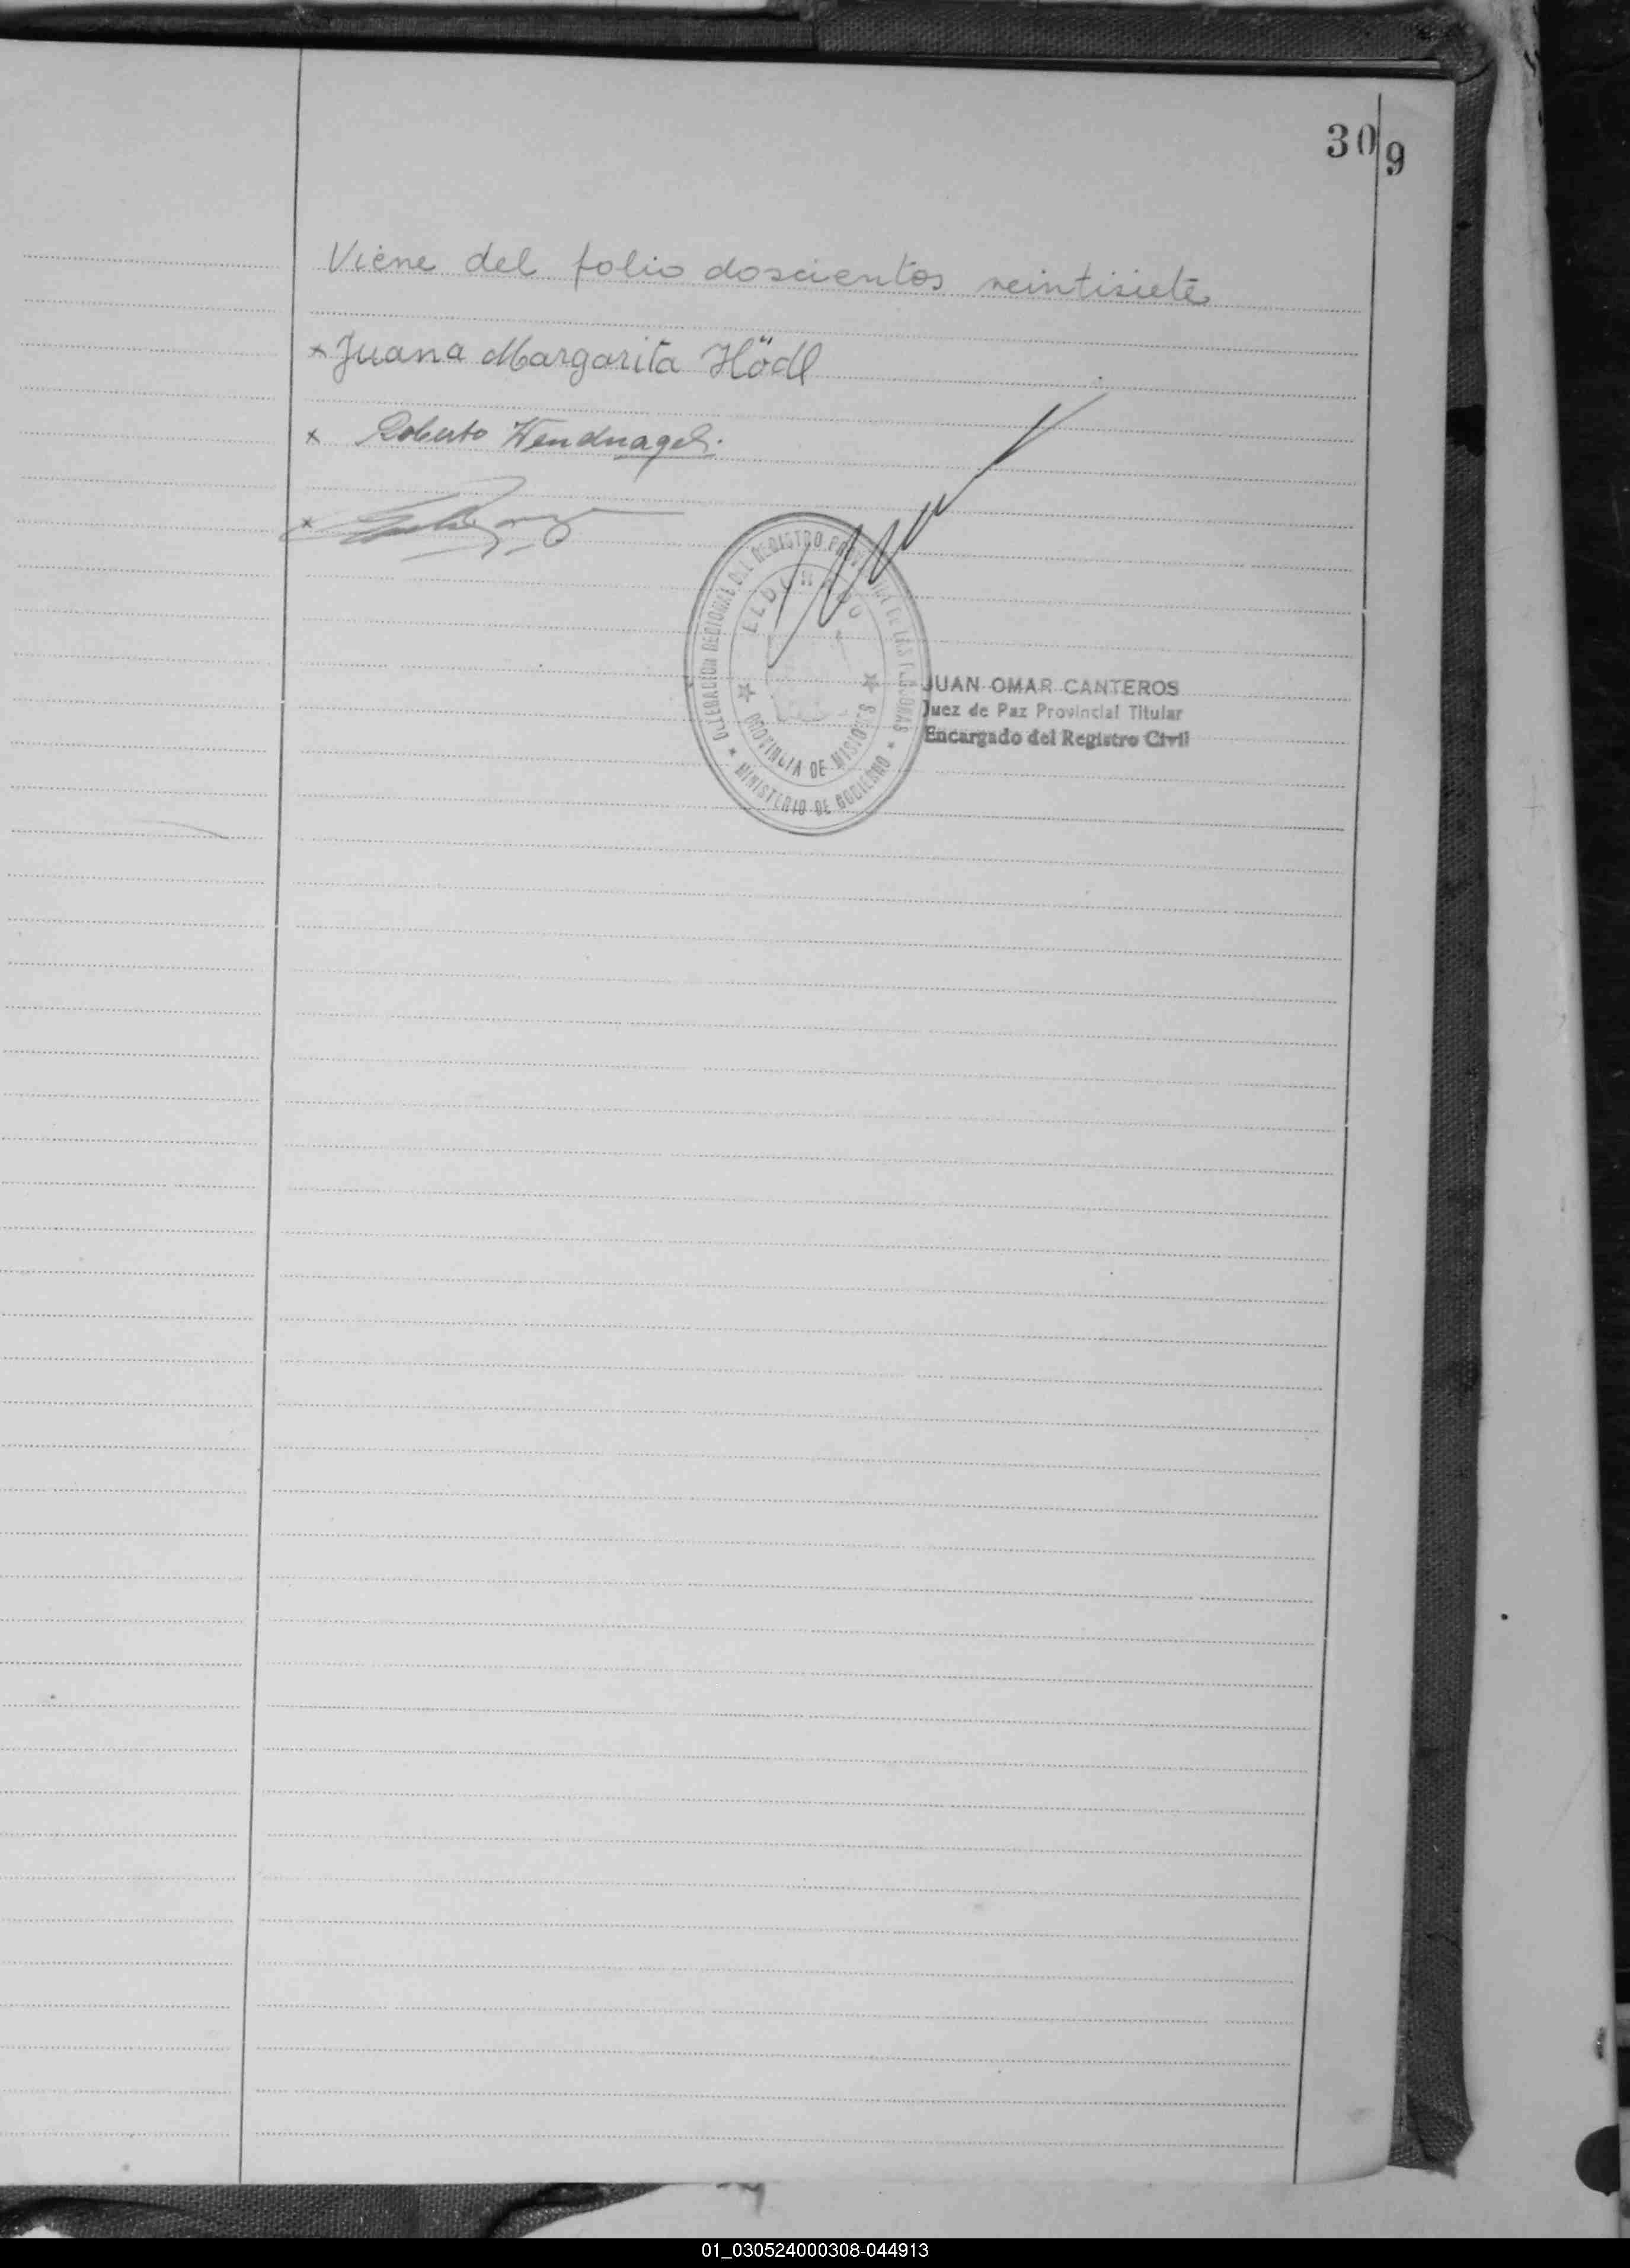 309
Viene del folio doscientos veintisiete
x Juana Margarita Hödl
x Roberto Wendnagel.
x
DELEGACION REGIONAL DEL REGISTRO PROVINCIAL DE LAS PERSONAS
ELDORADO
PROVINCIA DE MISIONES
MINISTERIO DE GOBIERNO
JUAN OMAR CANTEROS
Juez de Paz Provincial Titular
Encargado del Registro Civil
01_030524000308-044913